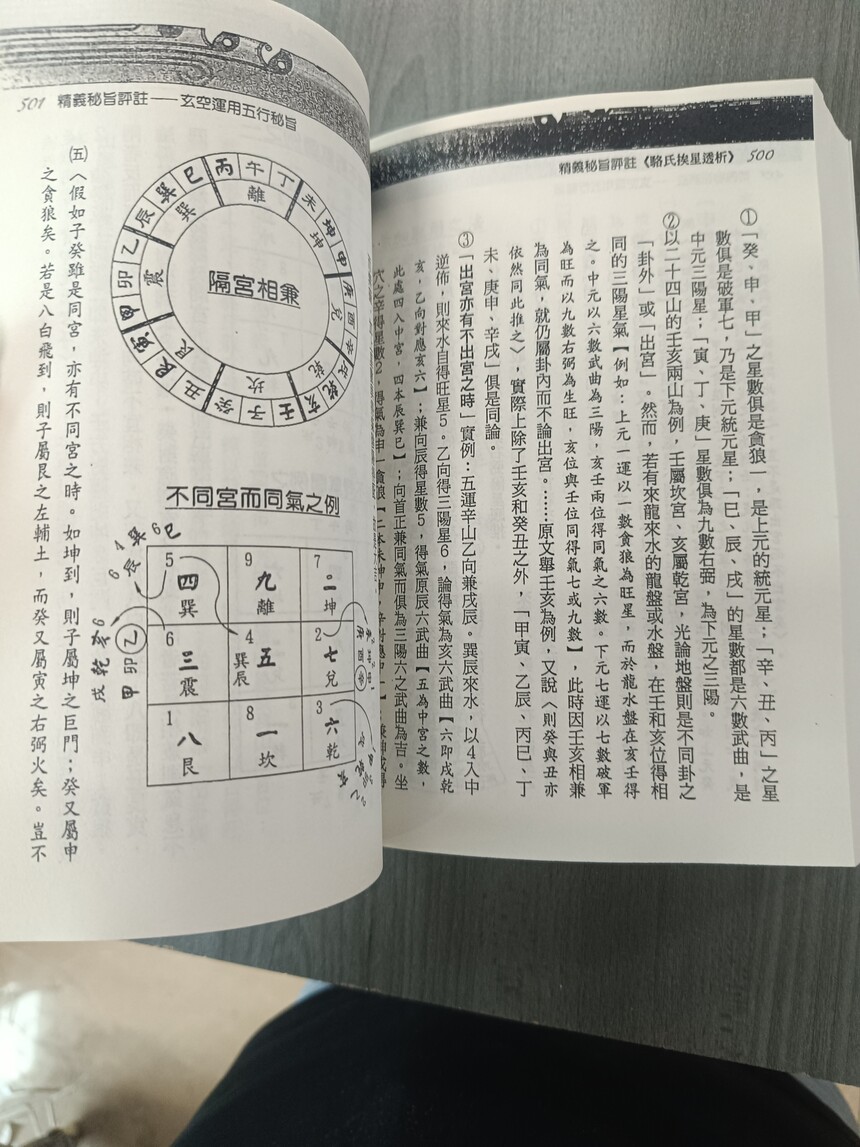 精義秘旨評註《駱氏挨星透析》 500
①「癸、申、甲」之星數俱是貪狼一，是上元的統元星；「辛、丑、丙」之星
數俱是破軍七，乃是下元統元星；「巳、辰、戌」的星數都是六數武曲，是
中元三陽星；「寅、丁、庚」星數俱為九數右弼，為下元之三陽。
②以二十四山的壬亥兩山為例，壬屬坎宮、亥屬乾宮，光論地盤則是不同卦之
「卦外」或「出宮」。然而，若有來龍來水的龍盤或水盤，在壬和亥位得相
同的三陽星氣【例如：上元一運以一數貪狼為旺星，而於龍水盤在亥壬得
之。中元以六數武曲為三陽，亥壬兩位得同氣之六數。下元七運以七數破軍
為旺而以九數右弼為生旺，亥位與壬位同得氣七或九數】，此時因壬亥相兼
為同氣，就仍屬卦內而不論出宮。……原文舉壬亥為例，又說〈則癸與丑亦
依然同此推之〉，實際上除了壬亥和癸丑之外，「甲寅、乙辰、丙巳、丁
未、庚申、辛戌」俱是同論。
③「出宮亦有不出宮之時」實例：五運辛山乙向兼戌辰。巽辰來水，以4入中
逆佈，則來水自得旺星5。乙向得三陽星6，論得氣為亥六武曲【六即戌乾
亥，乙向對應亥六】；兼向辰得星數5，得氣原辰六武曲【五為中宮之數，
此處四入中宮，四本辰巽巳】；向首正兼同氣而俱為三陽六之武曲為吉。坐
穴之辛得星數2，得氣為申一貪狼
501 精義秘旨評註——玄空運用五行秘旨
隔宮相兼
丙 午 丁 未 坤 申 庚 酉 辛 戌 乾 亥 壬 子 癸 丑 艮 寅 甲 卯 乙 辰 巽 巳
離 坤 兌 乾 坎 艮 震 巽
不同宮而同氣之例
辰 巽 巳
5 四 巽
9 九 離
7 二 坤
6 三 震
4 五 巽辰
2 七 兌
1 八 艮
8 一 坎
3 六 乾
甲 卯 乙
戌 乾 亥
㈤〈假如子癸雖是同宮，亦有不同宮之時。如坤到，則子屬坤之巨門；癸又屬申
之貪狼矣。若是八白飛到，則子屬艮之左輔土，而癸又屬寅之右弼火矣。豈不